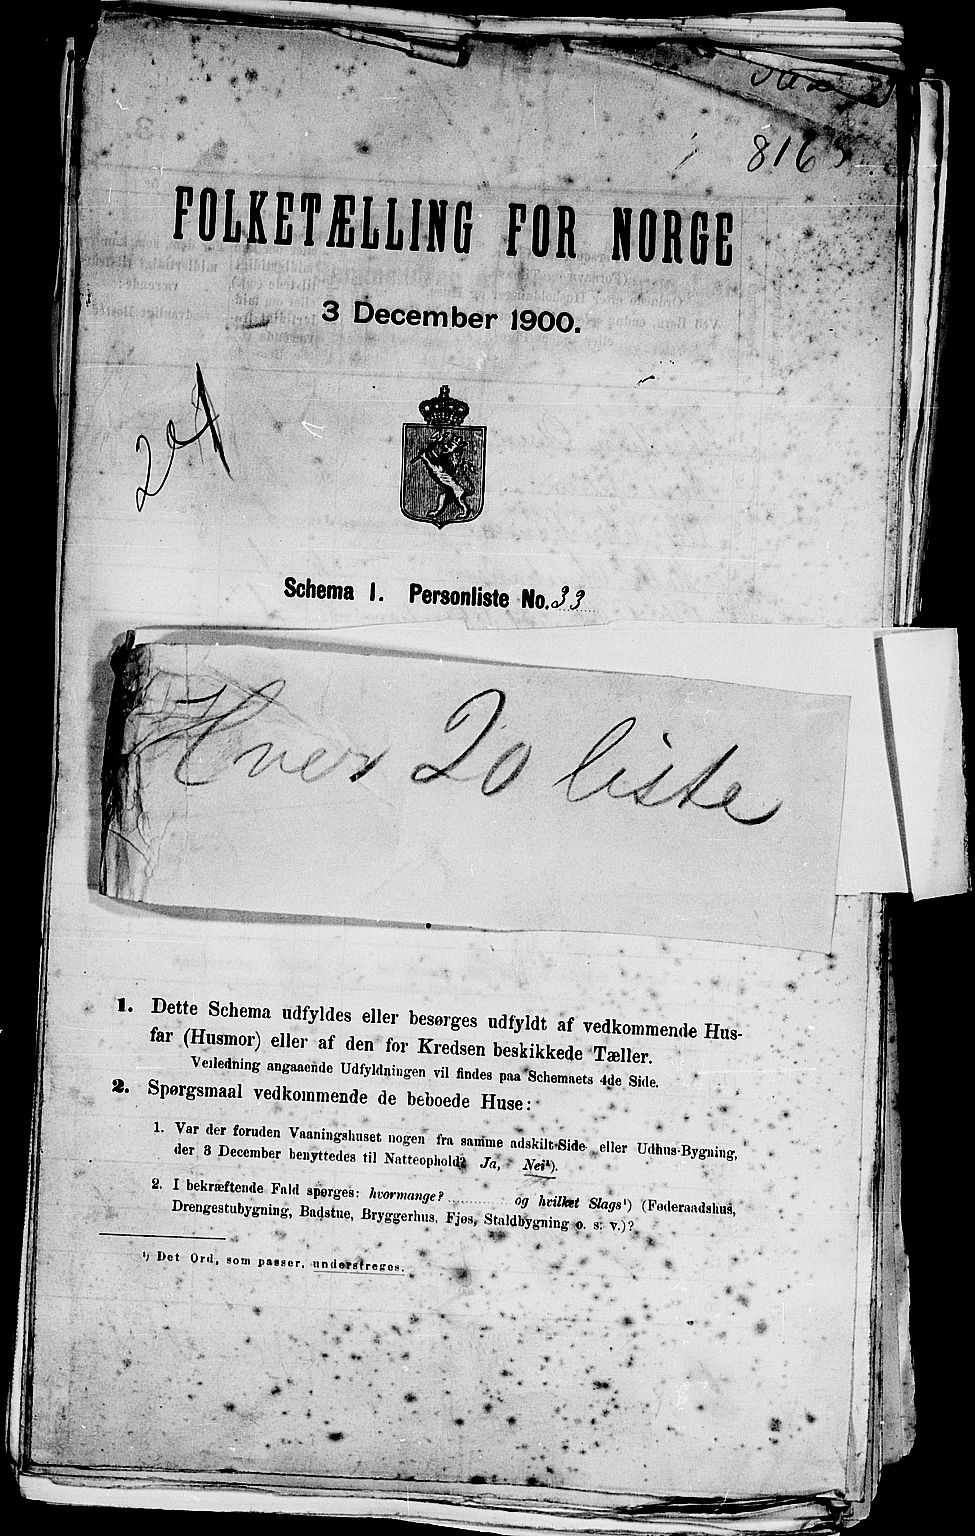 816
FOLKETÆLLING FOR NORGE
3 December 1900.
Schema 1. Personliste No. 33
Hver 20 liste
1. Dette Schema udfyldes eller besørges udfyldt af vedkommende Hus-
far (Husmor) eller af den for Kredsen beskikkede Tæller.
Veiledning angaaende Udfyldningen vil findes paa Schemaets 4de Side.
2. Spørgsmaal vedkommende de beboede Huse:
1. Var der foruden Vaaningshuset nogen fra samme adskilt Side- eller Udhus-Bygning,
der 3 December benyttedes til Natteophold? Ja, Nei¹).
2. I bekræftende Fald spørges: hvormange? ........ og hvilket Slags¹) (Føderaadshus,
Drengestubygning, Badstue, Bryggerhus, Fjøs, Staldbygning o. s. v.)?
¹) Det Ord, som passer, understreges.